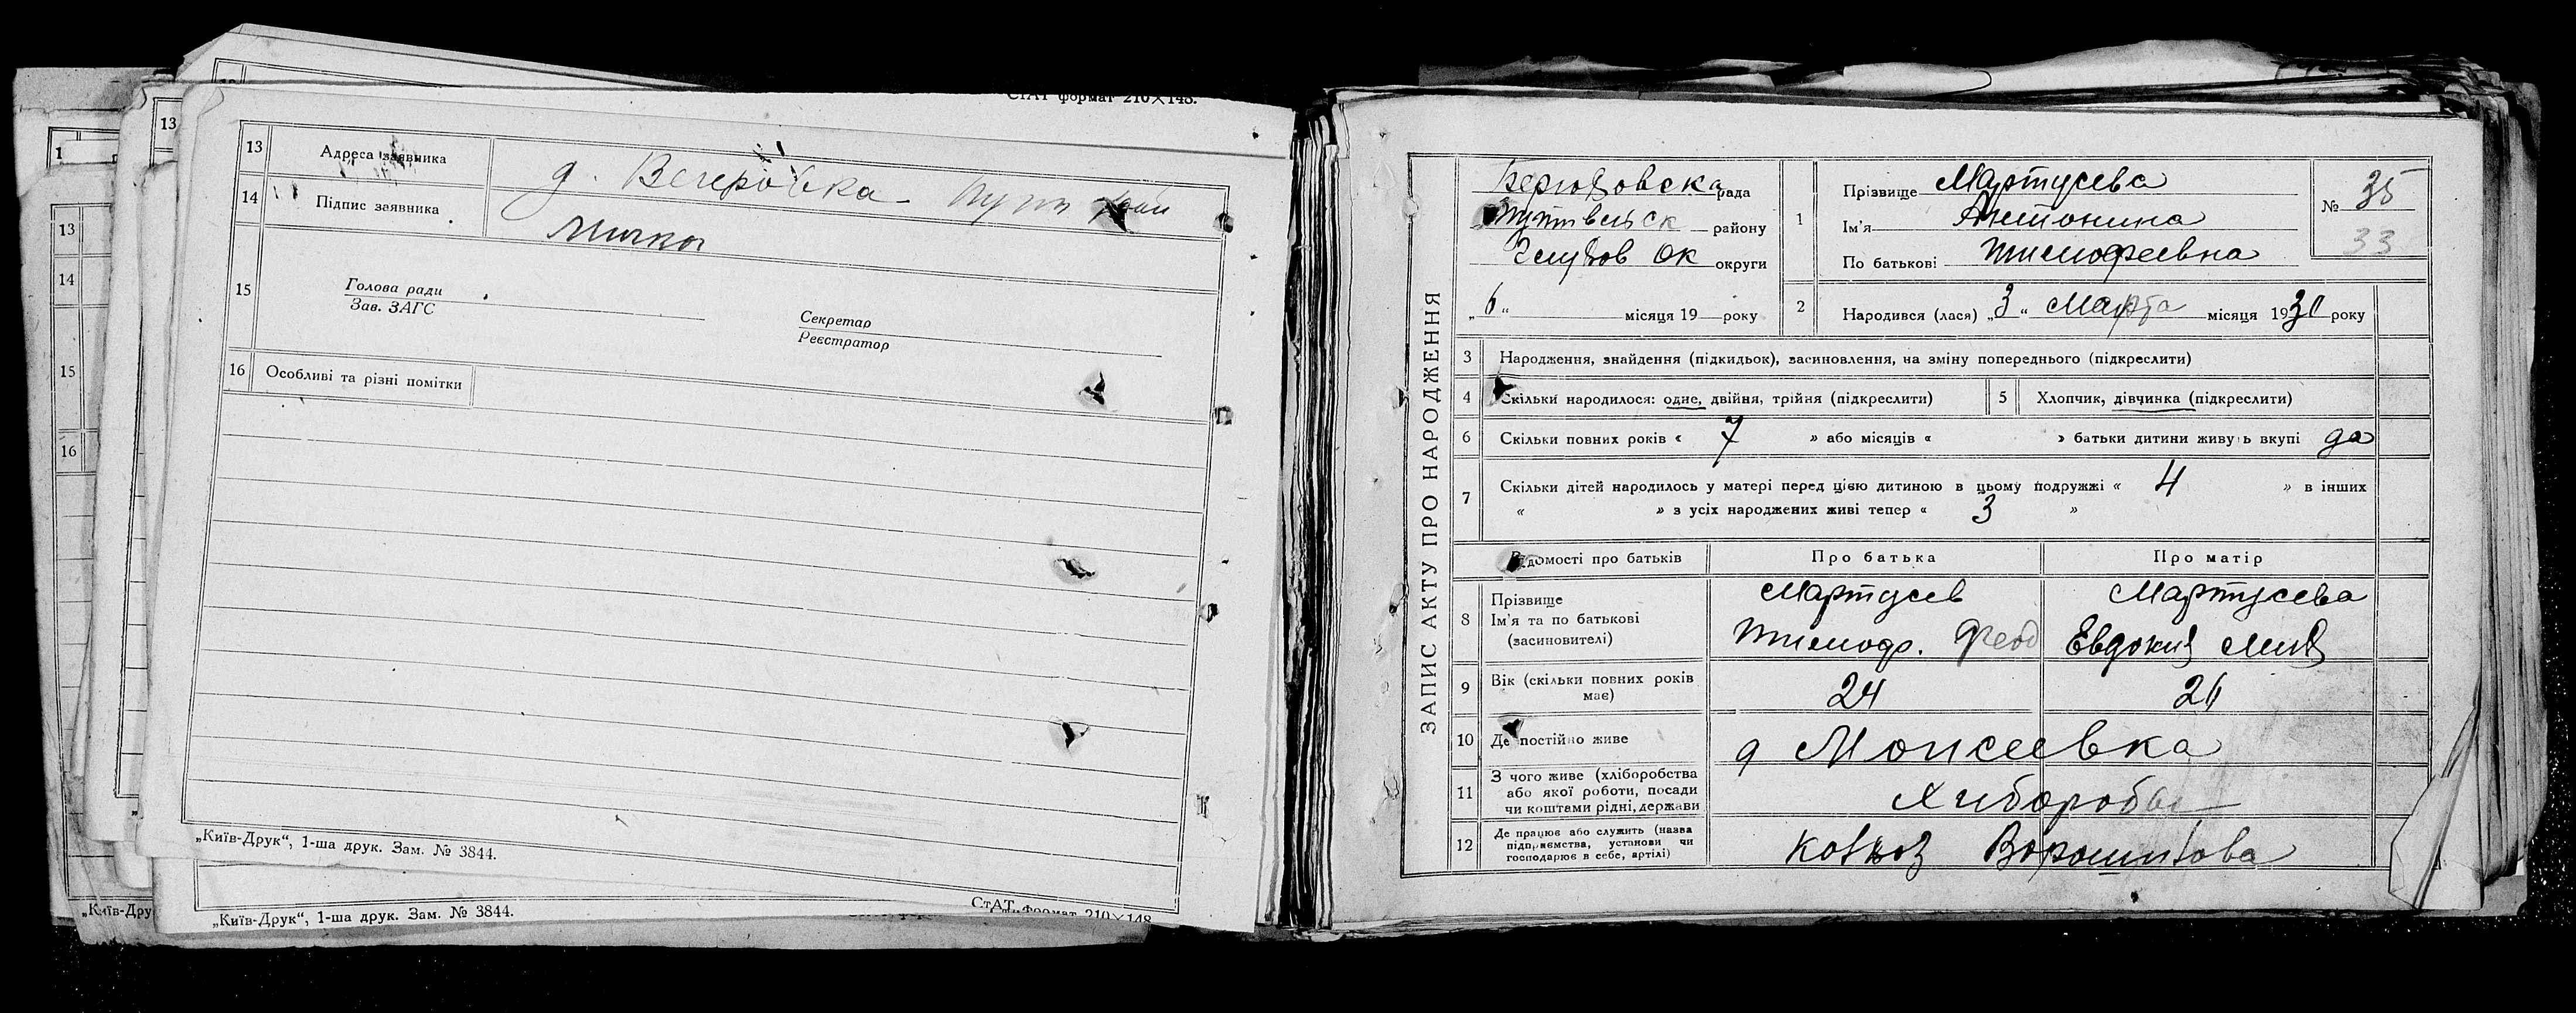 СтАТ формат 210×148.
13 Адреса заявника д. Вегеровка
14 Підпис заявника
15 Голова ради
Зав. ЗАГС
Секретар
Реєстратор
16 Особливі та різні помітки
„Київ-Друк“, 1-ша друк. Зам. № 3844.
„Київ-Друк“, 1-ша друк. Зам. № 3844.
СтАТ формат 210×148
13
14
15
16
„Київ-Дру
ЗАПИС АКТУ ПРО НАРОДЖЕННЯ
рада
району
Глухов ок округи
„6“ місяця 19 року
1 Прізвище Мартусева
Ім'я Антонина
По батькові Тимофеевна
№ 35
33
2 Народився (лася) „3“ Марта місяця 1930 року
3 Народження, знайдення (підкидьок), засиновлення, на зміну попереднього (підкреслити)
4 Скільки народилося: одне, двійня, трійня (підкреслити)
5 Хлопчик, дівчинка (підкреслити)
6 Скільки повних років « 7 » або місяців « » батьки дитини живуь вкупі да
7 Скільки дітей народилось у матері перед цією дитиною в цьому подружжі « 4 » в інших
« » з усіх народжених живі тепер « 3 »
Відомості про батьків Про батька Про матір
8 Прізвище
Ім'я та по батькові
(засиновителі)
Мартусев
Тимоф. Феод
Мартусева
Евдокия
9 Вік (скільки повних років
має)
24 26
10 Де постійно живе д Моисеевка
11 З чого живе (хліборобства
або якої роботи, посади
чи коштами рідні, держави
12 Де працює або служить (назва
підприємства, установи чи
господарює в себе, артілі)
колхоз Ворошилова